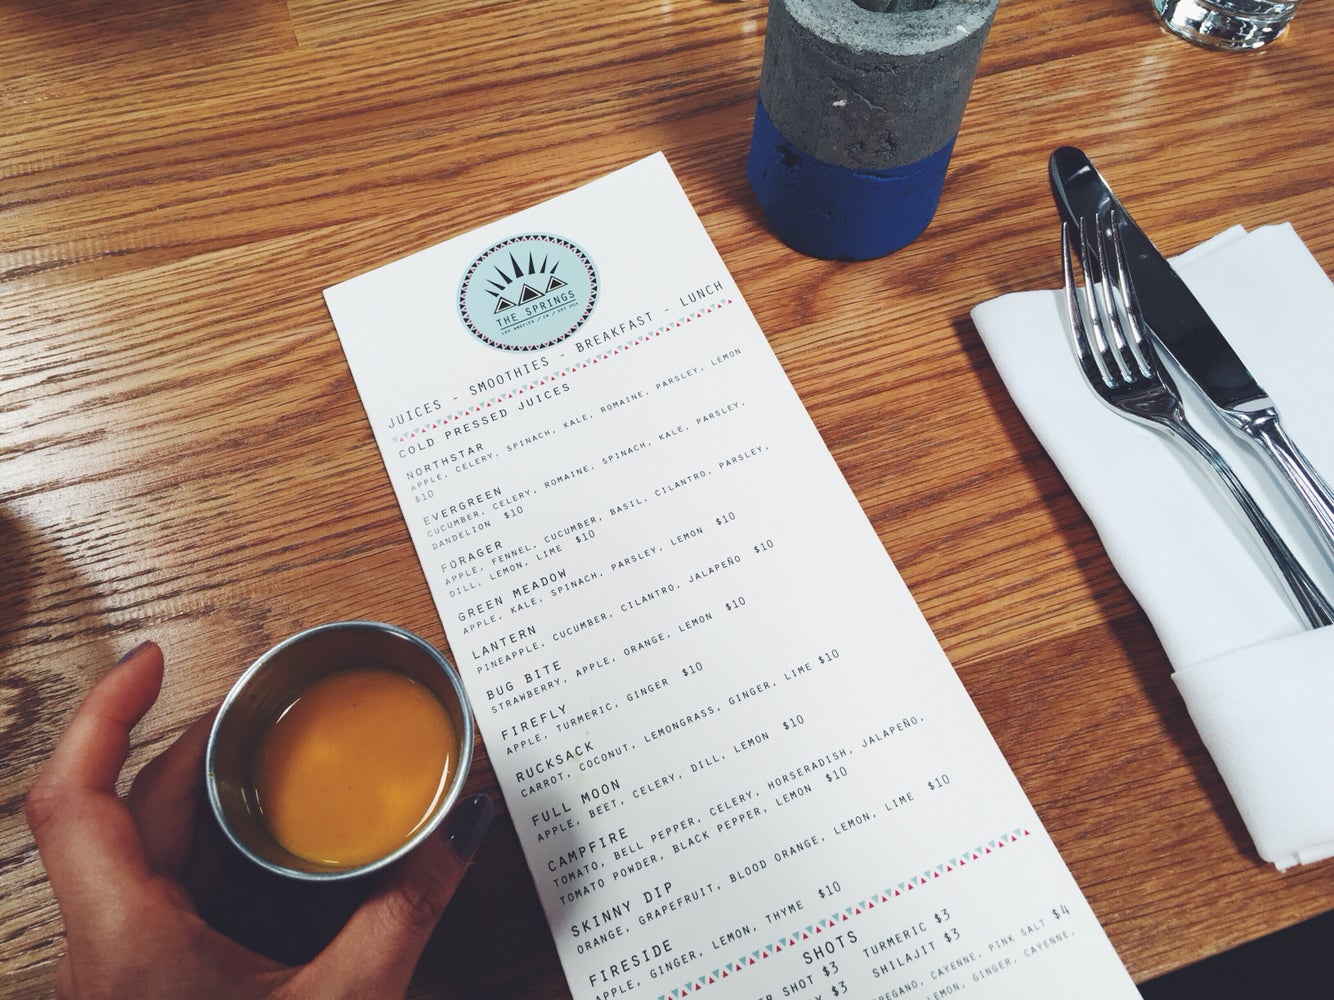 THE SPRINGS
LOS ANGELES / CA / EST 2014
JUICES - SMOOTHIES - BREAKFAST - LUNCH
COLD PRESSED JUICES
NORTHSTAR
APPLE, CELERY, SPINACH, KALE, ROMAINE, PARSLEY, LEMON
$10
EVERGREEN
CUCUMBER, CELERY, ROMAINE, SPINACH, KALE, PARSLEY,
DANDELION $10
FORAGER
APPLE, FENNEL, CUCUMBER, BASIL, CILANTRO, PARSLEY,
DILL, LEMON, LIME $10
GREEN MEADOW
APPLE, KALE, SPINACH, PARSLEY, LEMON $10
LANTERN
PINEAPPLE, CUCUMBER, CILANTRO, JALAPEÑO $10
BUG BITE
STRAWBERRY, APPLE, ORANGE, LEMON $10
FIREFLY
APPLE, TURMERIC, GINGER $10
RUCKSACK
CARROT, COCONUT, LEMONGRASS, GINGER, LIME $10
FULL MOON
APPLE, BEET, CELERY, DILL, LEMON $10
CAMPFIRE
TOMATO, BELL PEPPER, CELERY, HORSERADISH, JALAPEÑO,
TOMATO POWDER, BLACK PEPPER, LEMON $10
SKINNY DIP
ORANGE, GRAPEFRUIT, BLOOD ORANGE, LEMON, LIME $10
FIRESIDE
APPLE, GINGER, LEMON, THYME $10
SHOTS
SHOT $3 TURMERIC $3
$3 SHILAJIT $3
CAYENNE, PINK SALT $4
LEMON, GINGER, CAYENNE,